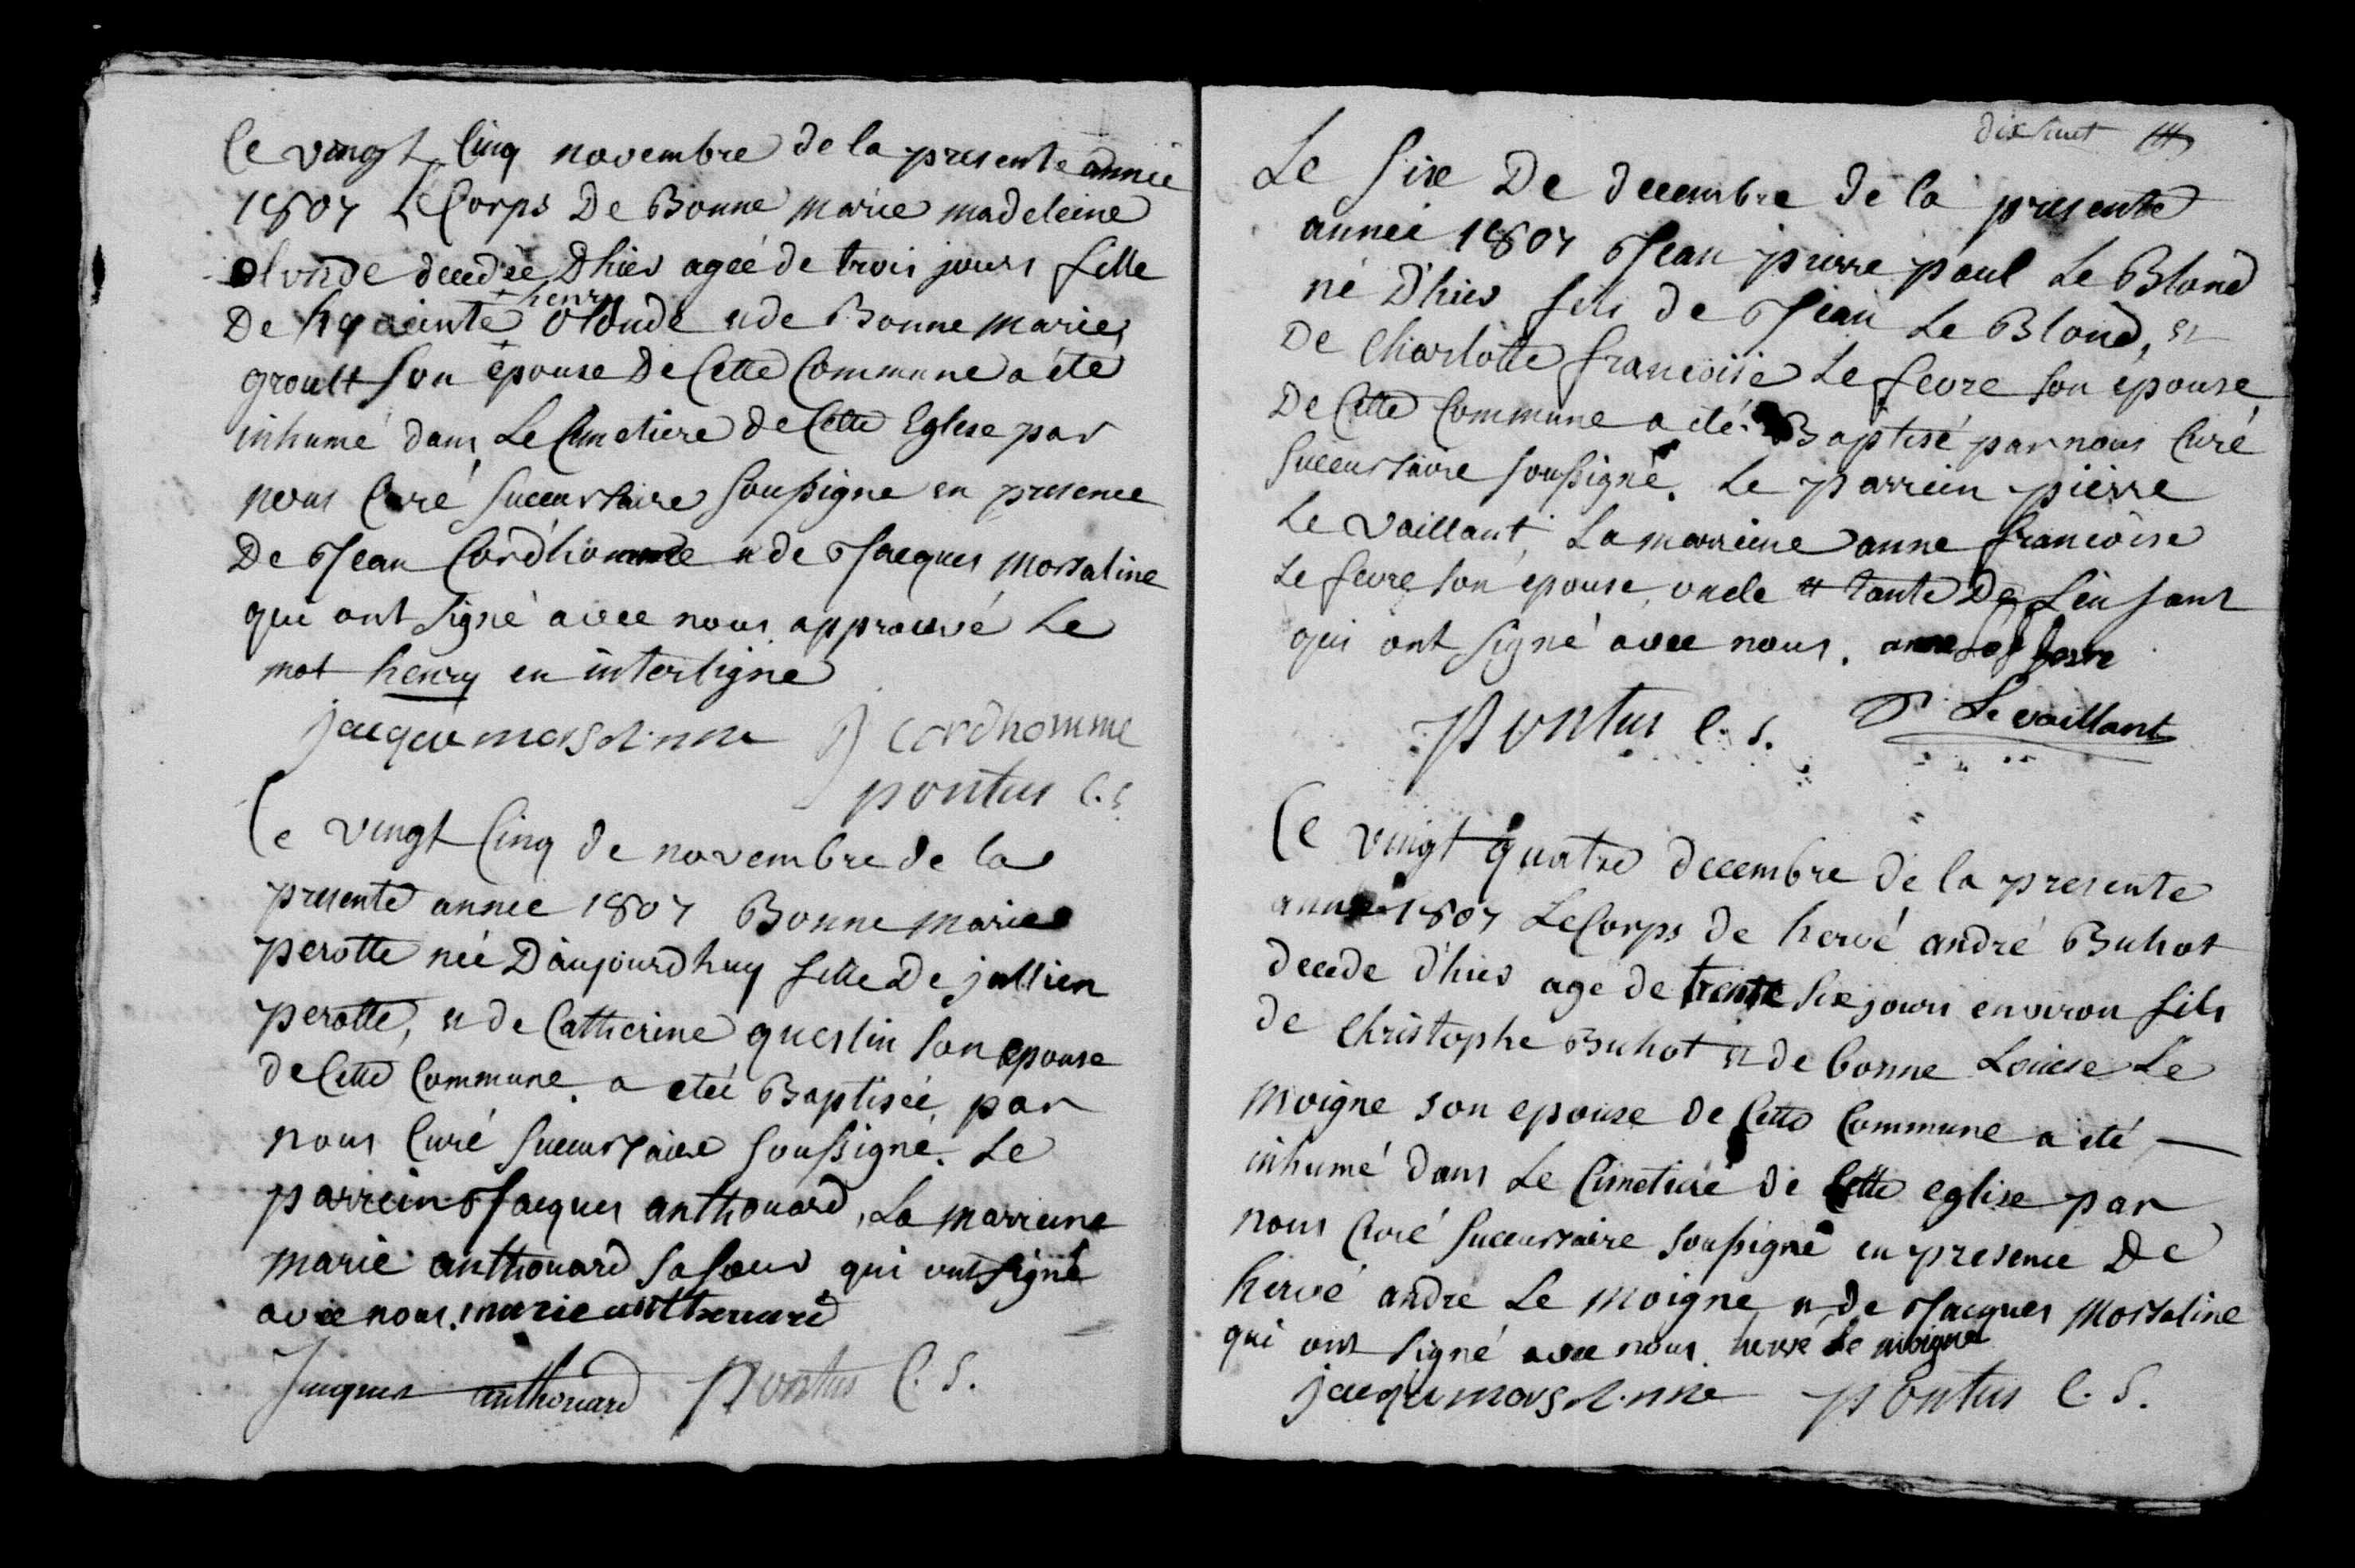 Ce vingt Cinq novembre de la presente année
1807 Le Corps De Bonne marie madeleine
olonde decedée D'hier agée de trois jours fille
henry
De hyacinte + olonde et de Bonne marie
groult son épouse De Cette Commune a été
inhumé dans Le Cimetiere de Cette Eglise par
nous Curé succursaire soussigné en presence
De Jean Cordhomme et de Jacques morsaline
qui ont signé avec nous approuvé le
mot henry en interligne
jacque morsalinne J cordhomme
pontus C. S
Ce vingt Cinq de novembre de la
presente année 1807 Bonne marie
perotte née D'aujourdhuy fille De jullien
perotte, et de Catherine questin son epouse
de Cette Commune a eteé Baptisée par
nous Curé succursaire soussigné. Le
parrein Jacques anthouard, La marreine
marie anthouard sa soeur qui ont signé
avec nous. marie anthouard
Jacques anthouard Pontus C. S.
dix huit
Le six De decembre de la presente
année 1807 Jean pierre paul Le Blond
né D'hier fils de Jean Le Blond, et
De Charlotte francoise Le fevre son épouse
De Cette Commune a été Baptisé par nous Curé
succursaire soussigné. Le parrein pierre
Le vaillant, La marreine anne francoise
Le fevre son epouse, oncle et tante De L'enfant
qui ont signé avec nous. anne Le fevre
Pontus C. S. P Le vaillant
Ce vingt quatre decembre de la presente
année 1807 Le Corps de hervé andré Buhot
decede d'hier age de trente six jours environ fils
de Christophe Buhot et de bonne Louise Le
Moigne son epouse de Cette Commune a été
inhumé dans Le Cimetiere de Cette eglise par
nous Curé succursaire soussigné en presence De
hervé andre Le Moigne et de Jacques Morsaline
qui ont signé avec nous. hervé Le moigne
jacque morsalinne Pontus C. S.